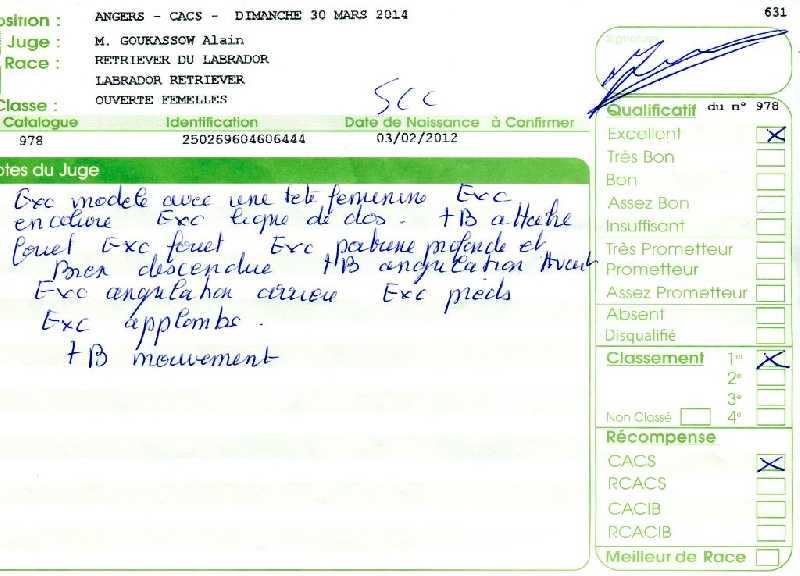 osition : ANGERS - CACS - DIMANCHE 30 MARS 2014
631
Juge : M. GOUKASSOW Alain
Race : RETRIEVER DU LABRADOR
LABRADOR RETRIEVER
Classe : OUVERTE FEMELLES
SCC
Signature
Catalogue Identification Date de Naissance à Confirmer
978 250269604606444 03/02/2012
otes du Juge
Exc modele avec une tete feminine Exc
encolure Exc ligne de dos . TB attache
fouet Exc fouet Exc poitrine profonde et
Bien descendue TB angulation Avant
Exc angulation arriere Exc pieds
Exc applombs .
TB mouvement
Qualificatif du n° 978
Excellent
Très Bon
Bon
Assez Bon
Insuffisant
Très Prometteur
Prometteur
Assez Prometteur
Absent
Disqualifié
Classement 1er
2e
3e
Non Classé 4e
Récompense
CACS
RCACS
CACIB
RCACIB
Meilleur de Race